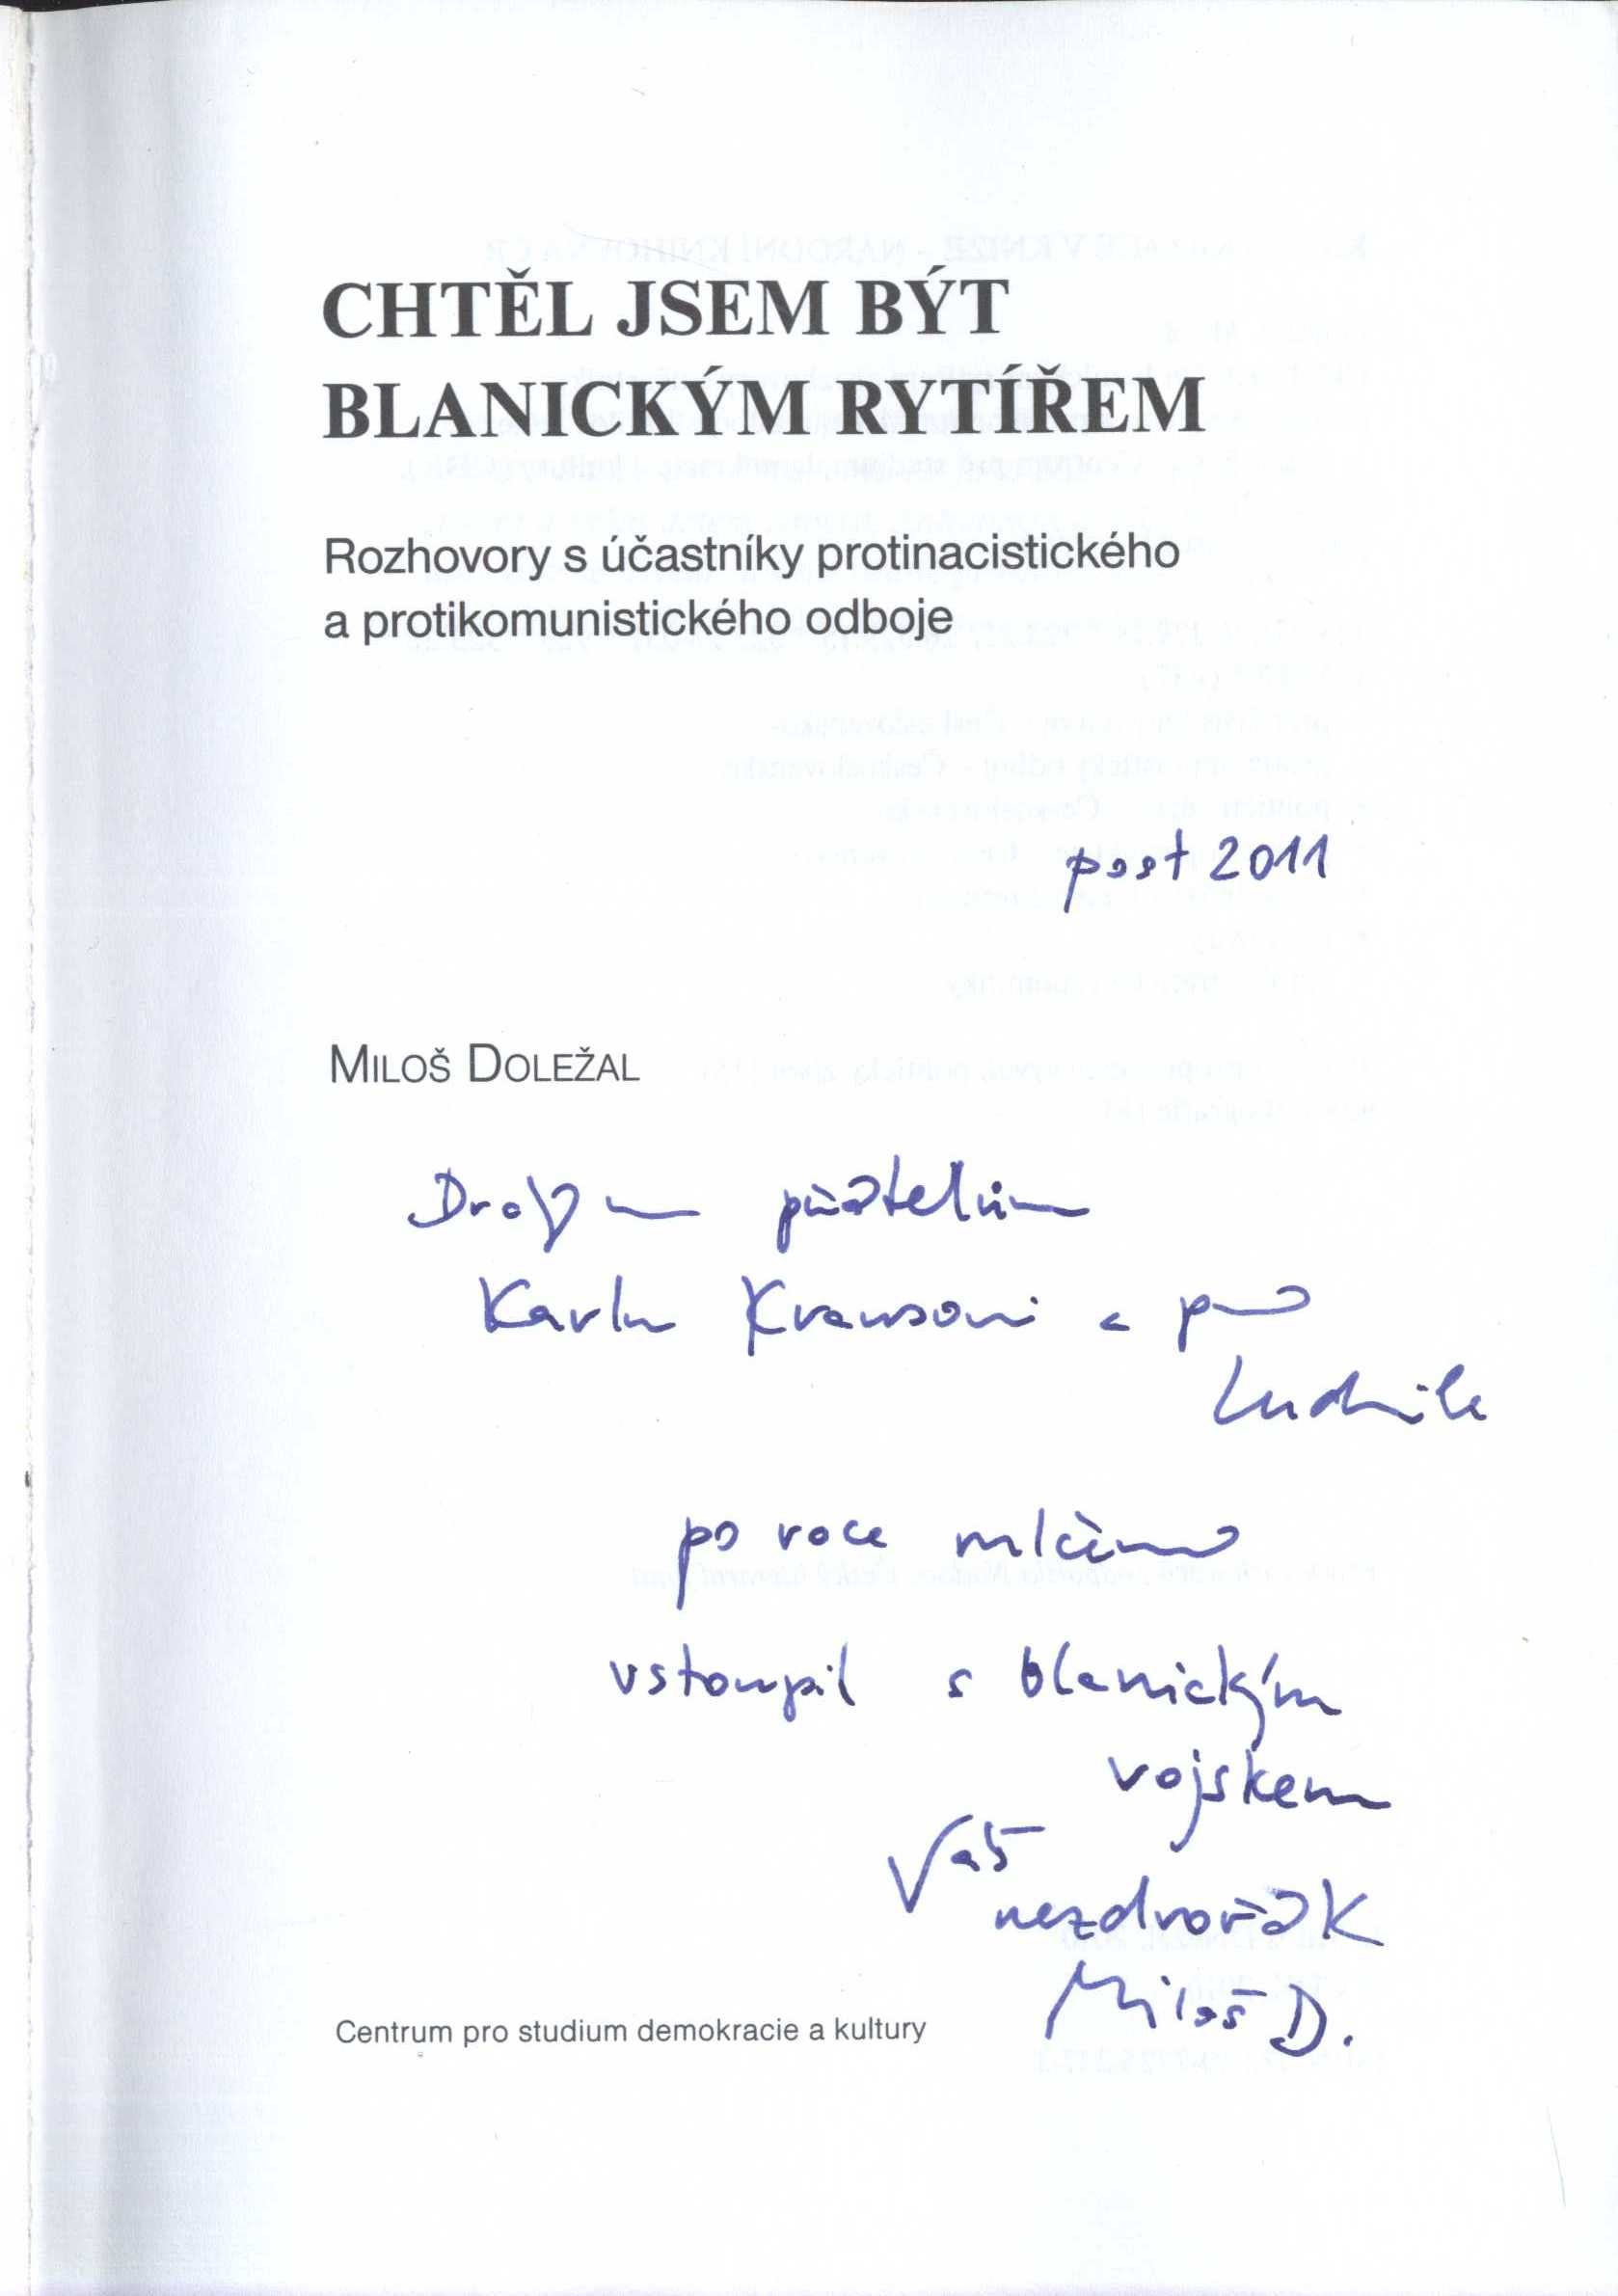 CHTĚL JSEM BÝT
BLANICKÝM RYTÍŘEM
Rozhovory s účastníky protinacistického
a protikomunistického odboje
post 2011
MILOŠ DOLEŽAL
Drahým přátelům
Karlu Krausovi a
Ludmile
po roce mlčení
vstoupil s blanickým
vojskem
Váš
nezdvořák
Miloš D.
Centrum pro studium demokracie a kultury